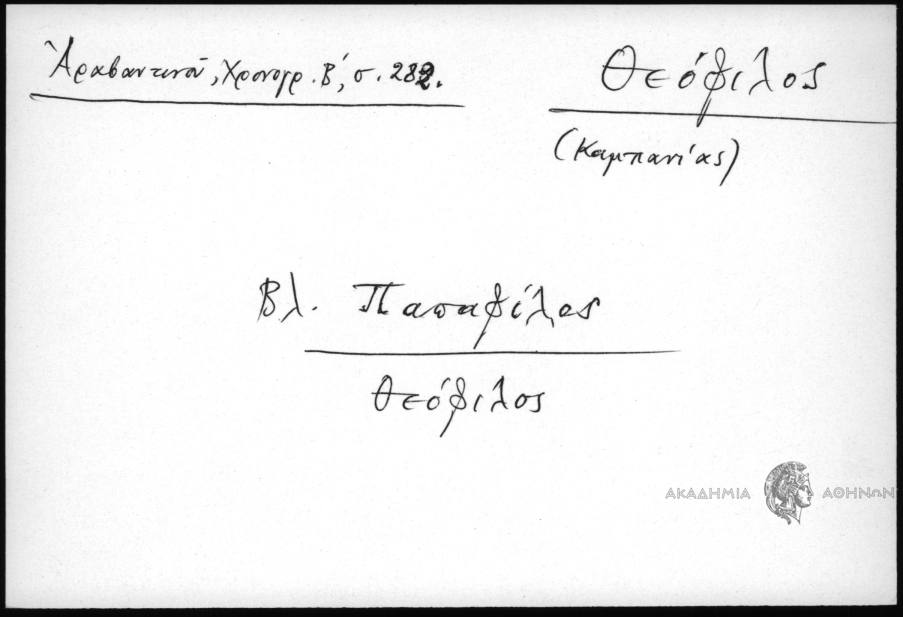 Ἀραβαντινοῦ, Χρονογρ. Β', σ. 282.
Θεόφιλος
(Καμπανίας)
Βλ. Παπαφίλος
Θεόφιλος
ΑΚΑΔΗΜΙΑ ΑΘΗΝΩΝ